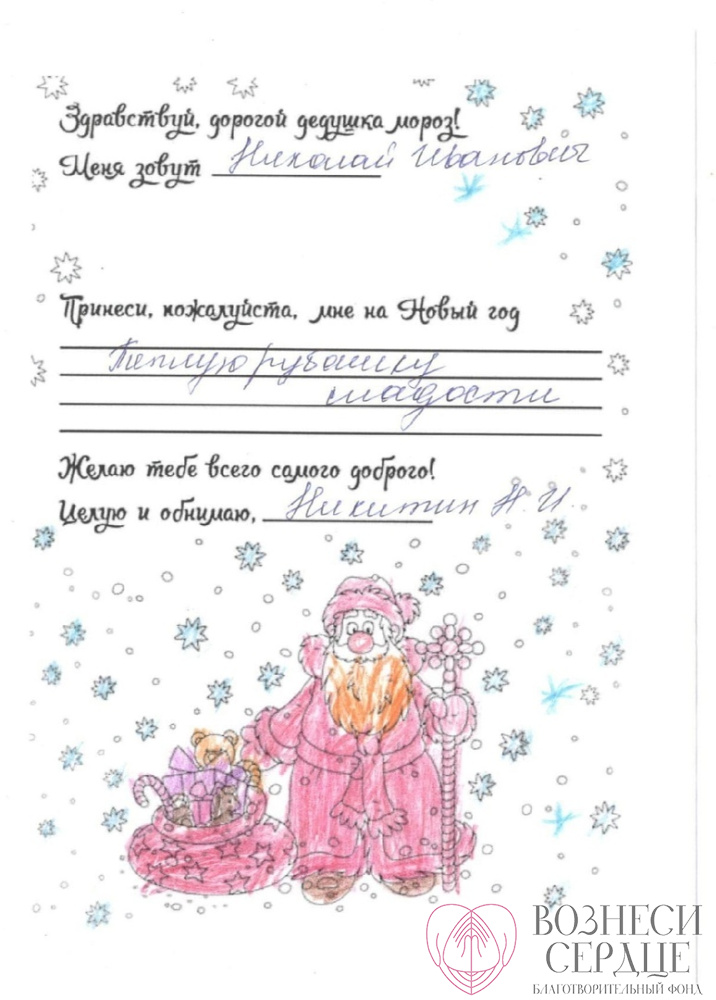 Здравствуй, дорогой дедушка мороз!
Меня зовут Николай Иванович
Принеси, пожалуйста, мне на Новый год
Теплую рубашку
сладости
Желаю тебе всего самого доброго!
Целую и обнимаю, Никитин Н. И.
ВОЗНЕСИ
СЕРДЦЕ
БЛАГОТВОРИТЕЛЬНЫЙ ФОНД